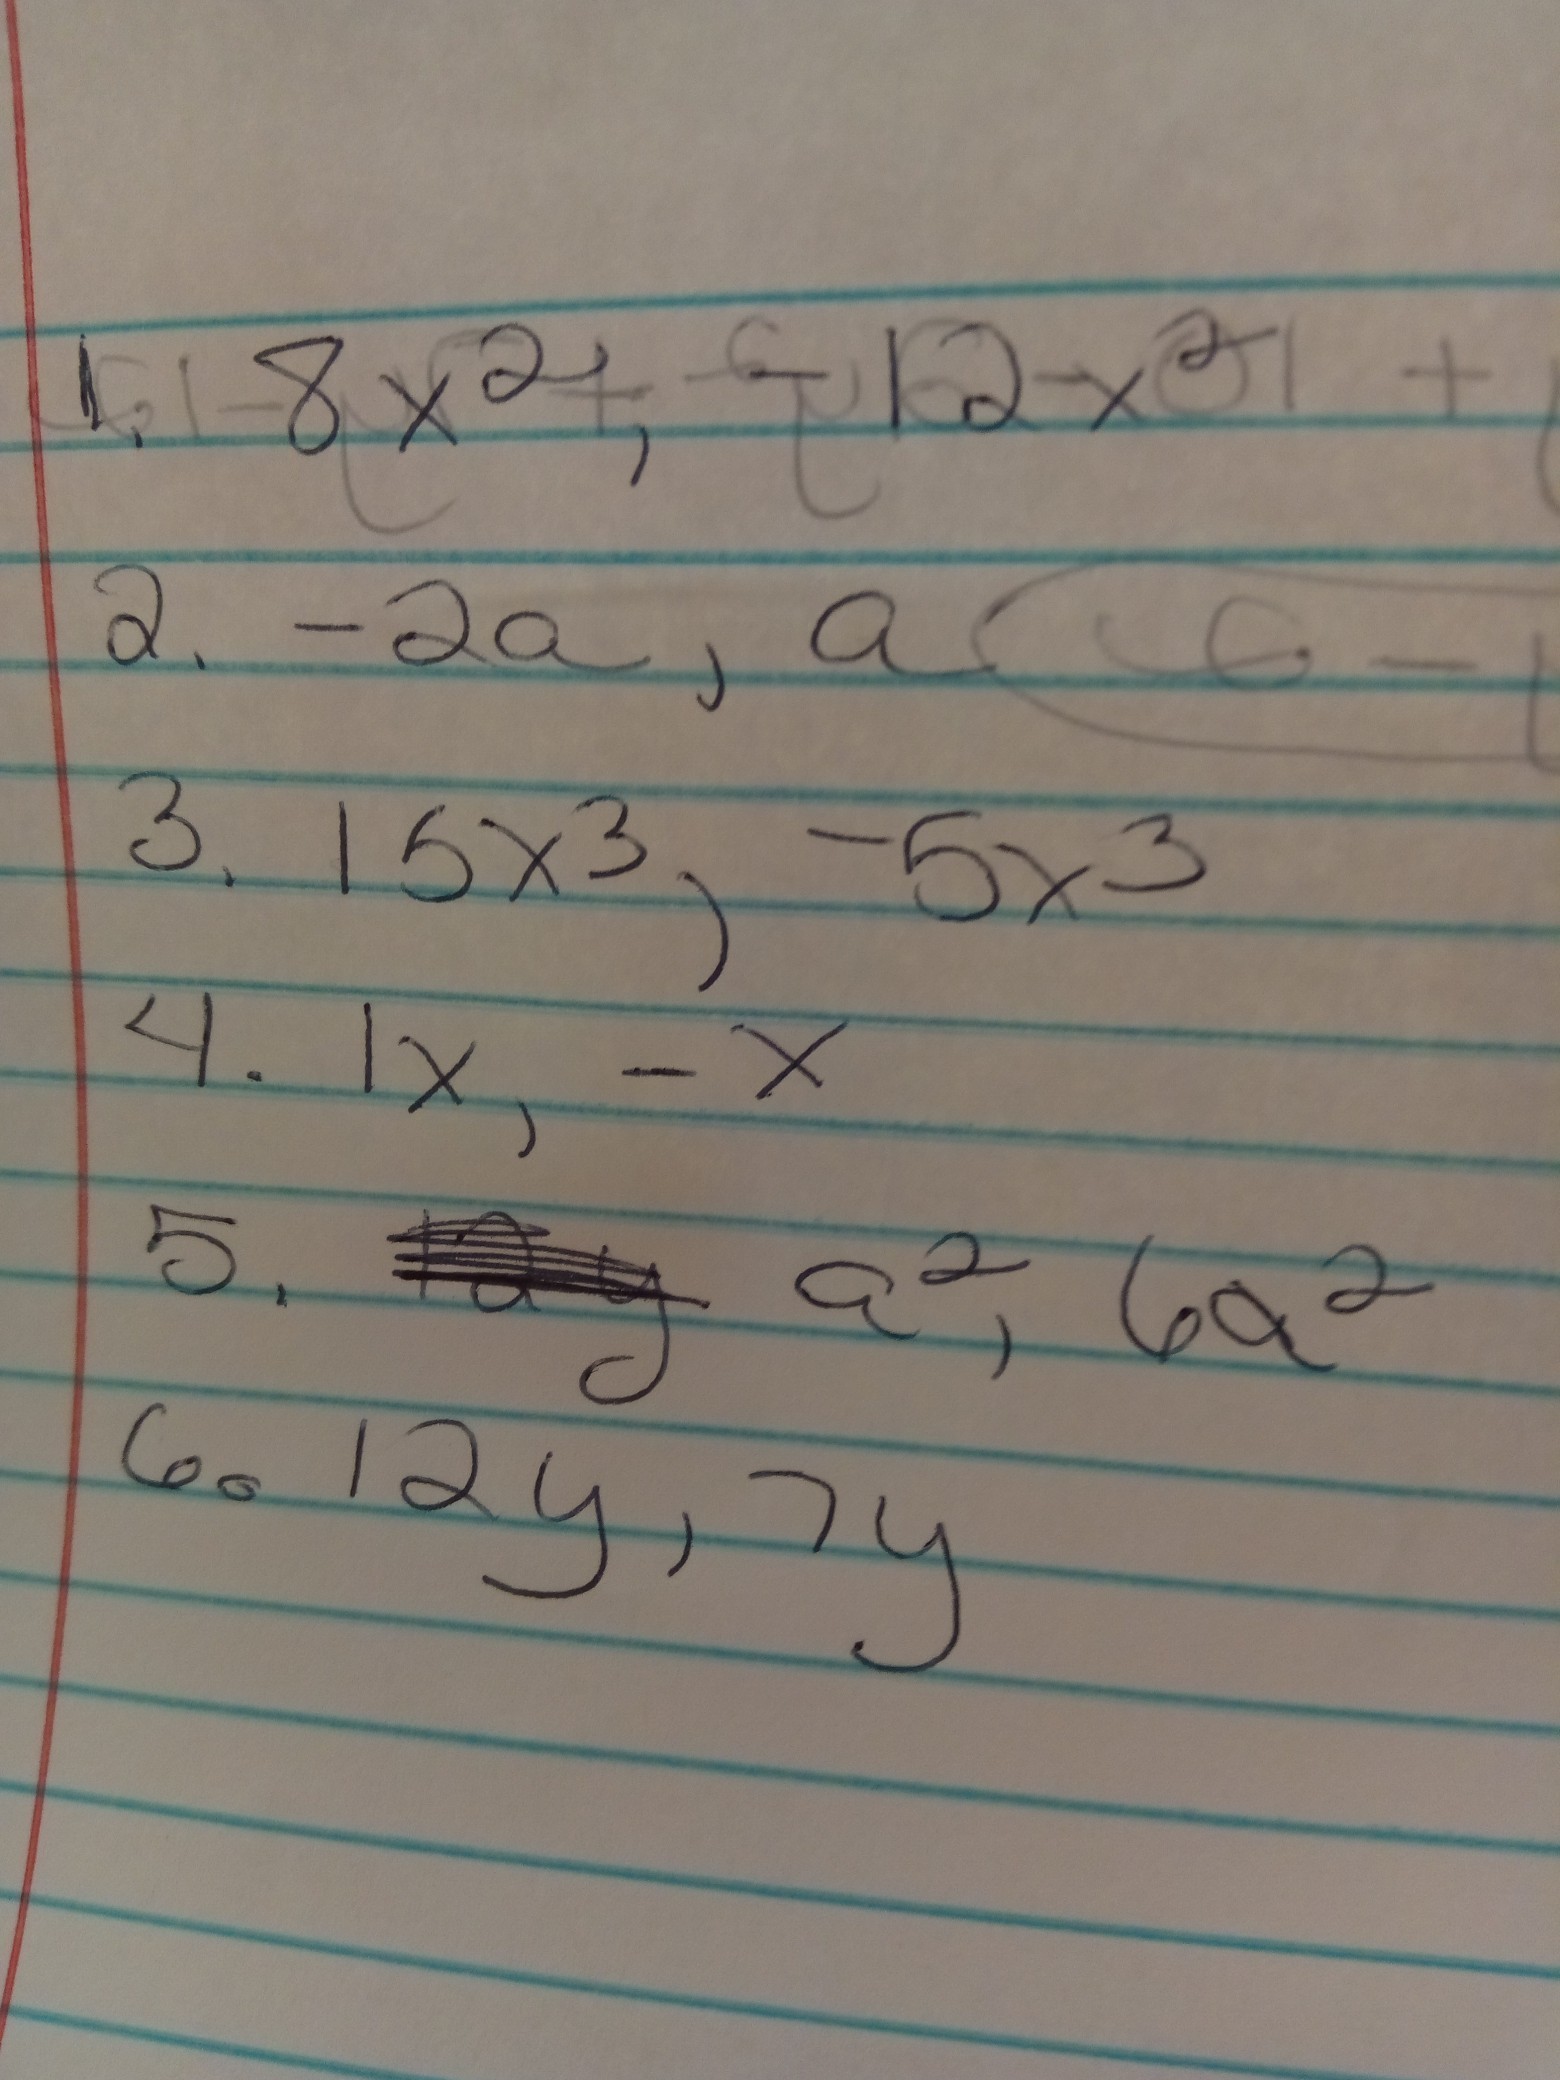 1. 8x², -12x²
2. -2a, a
3. 15x³, -5x³
4. 1x, -x
5. a², 6a²
6. 12y, 7y